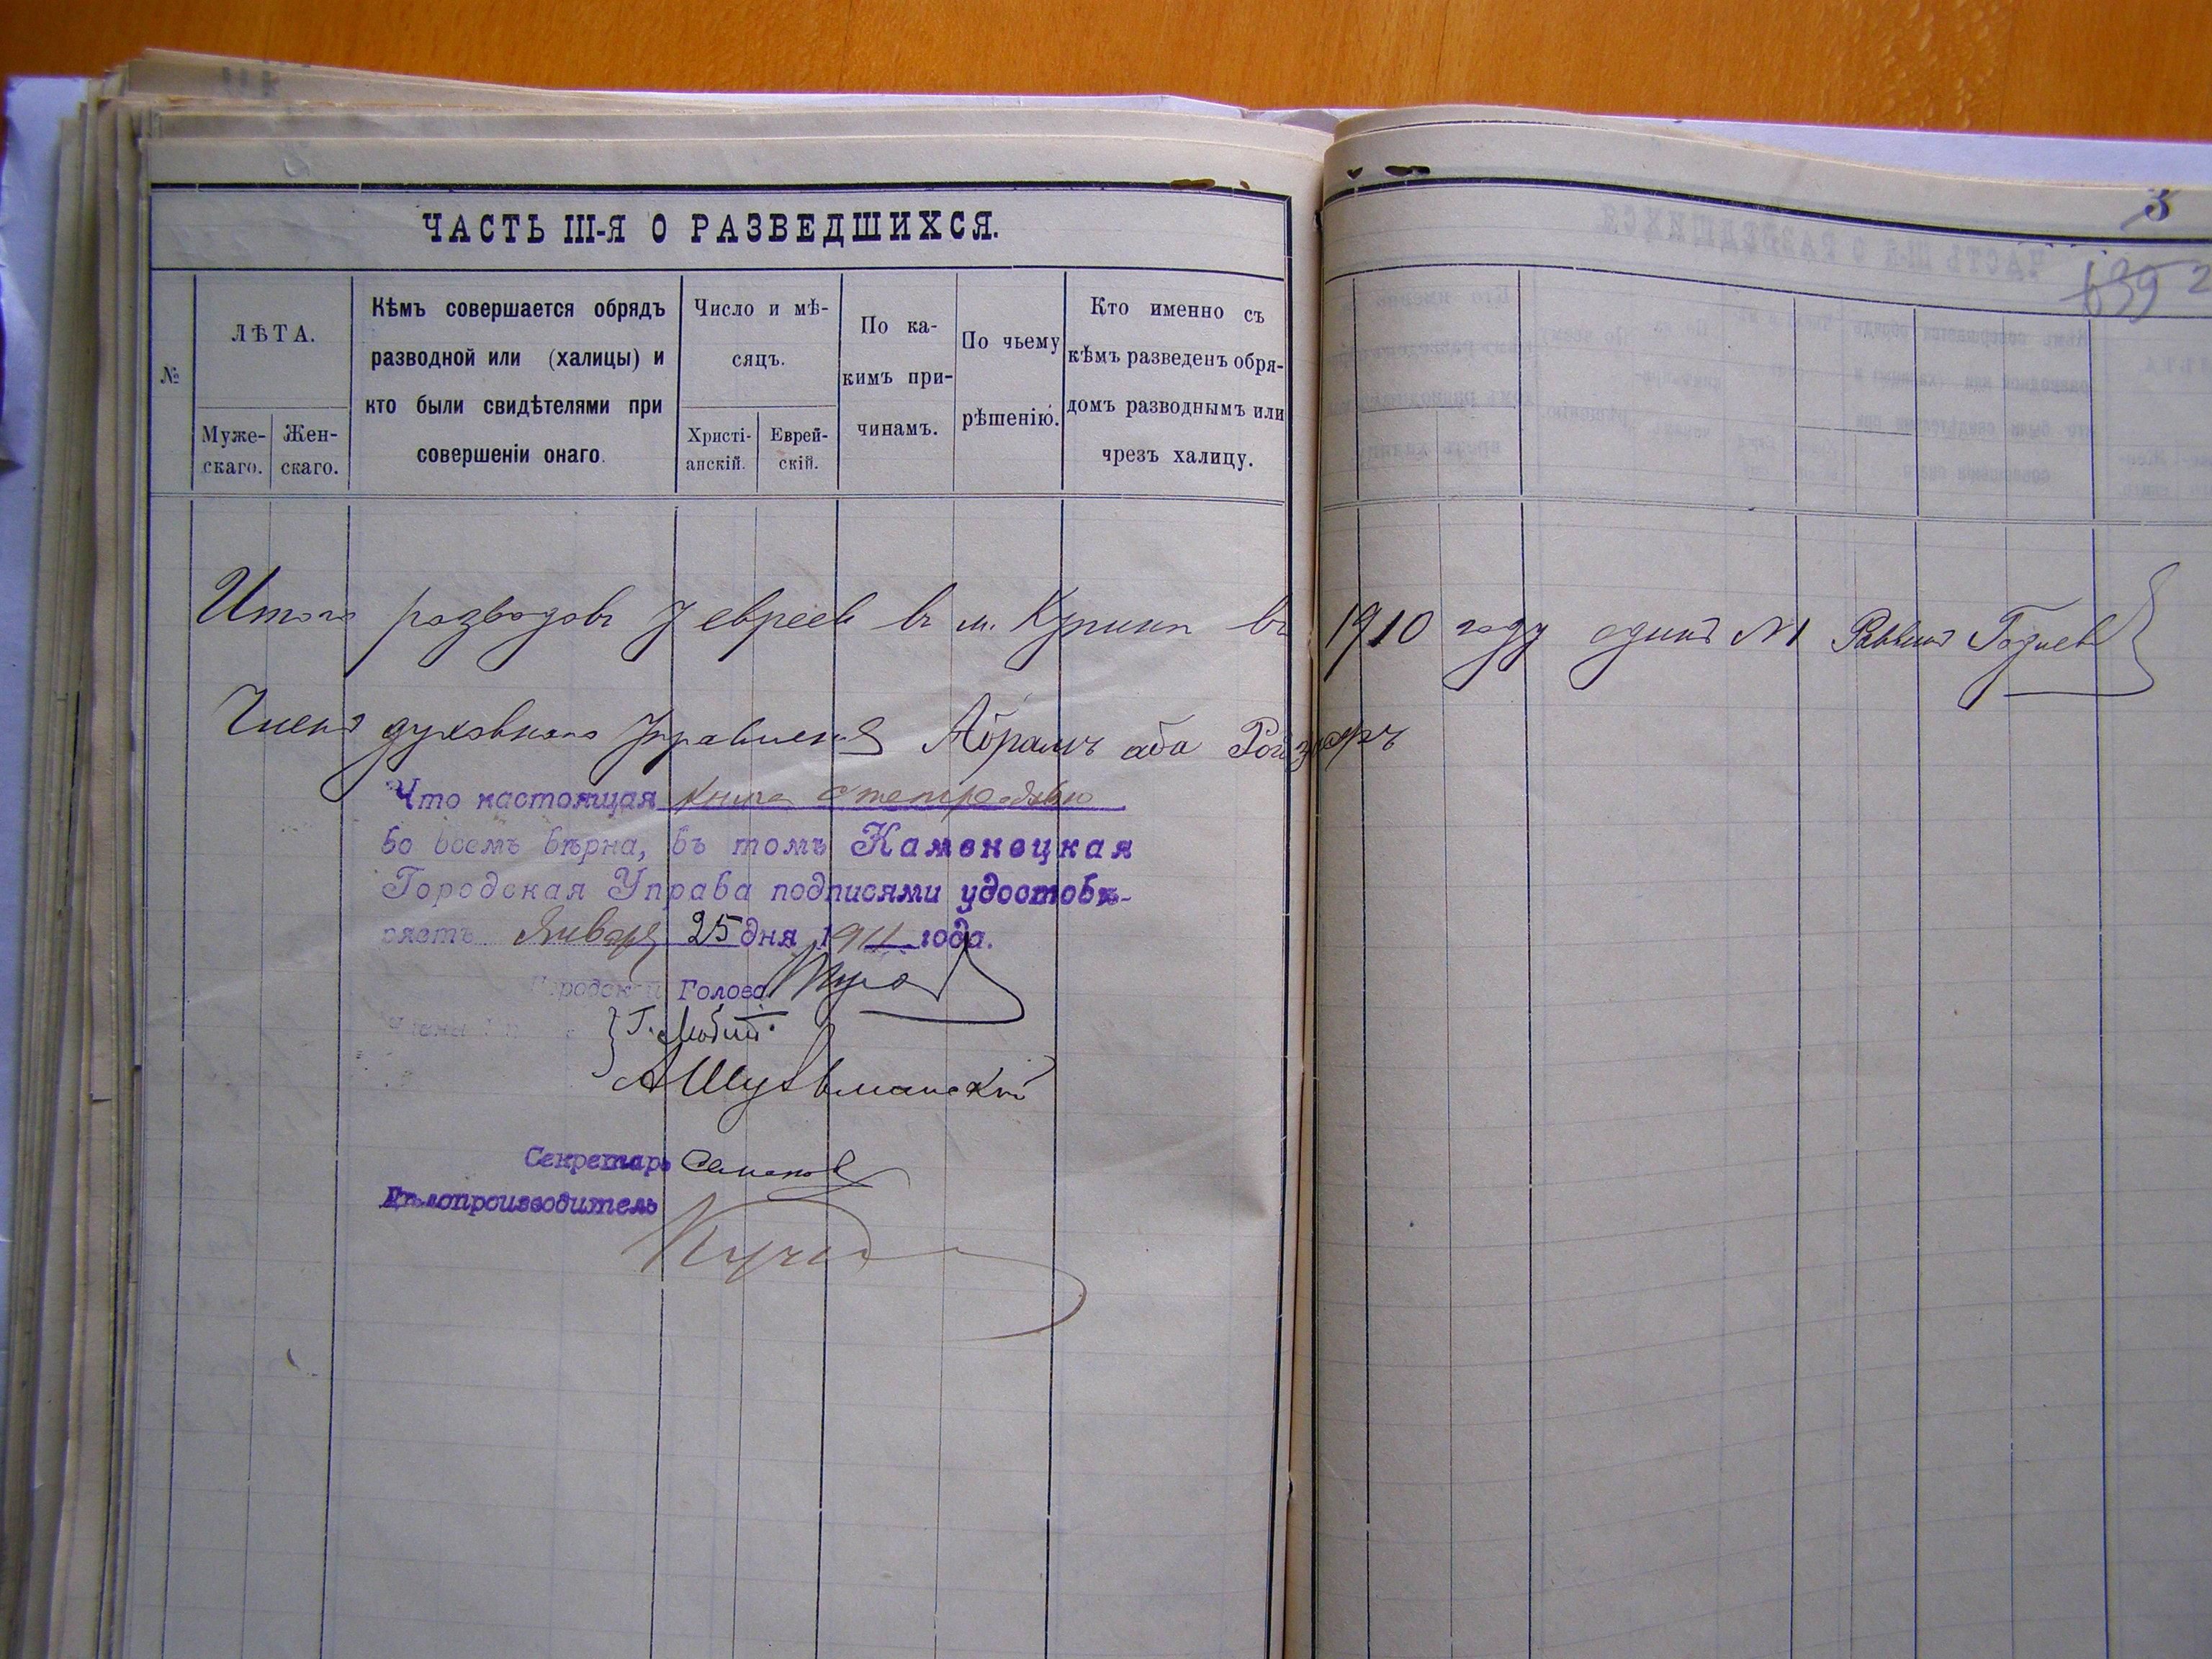 ЧАСТЬ III-Я О РАЗВЕДШИХСЯ.
3
1392
№
ЛѢТА.
Муже-
скаго.
Жен-
скаго.
Кѣмъ совершается обрядъ
разводной или (халицы) и
кто были свидѣтелями при
совершеніи онаго.
Число и мѣ-
сяцъ.
Христі-
анскій.
Еврей-
скій.
По ка-
кимъ при-
чинамъ.
По чьему
рѣшенію.
Кто именно съ
кѣмъ разведенъ обря-
домъ разводнымъ или
чрезъ халицу.
Итого разводовъ У евреев въ м. Купинѣ въ 1910 году одинъ №1 Раввинъ
Членъ духовнаго Управленія Абрамъ аба
Что настоящая книга с тетрадью
во всемъ вѣрна, въ томъ Каменецкая
Городская Управа подписями удостовѣ-
ряетъ Января 25 дня 1911 года.
Городской Голова
А Шульманский
Секретарь Семенов
Дѣлопроизводитель